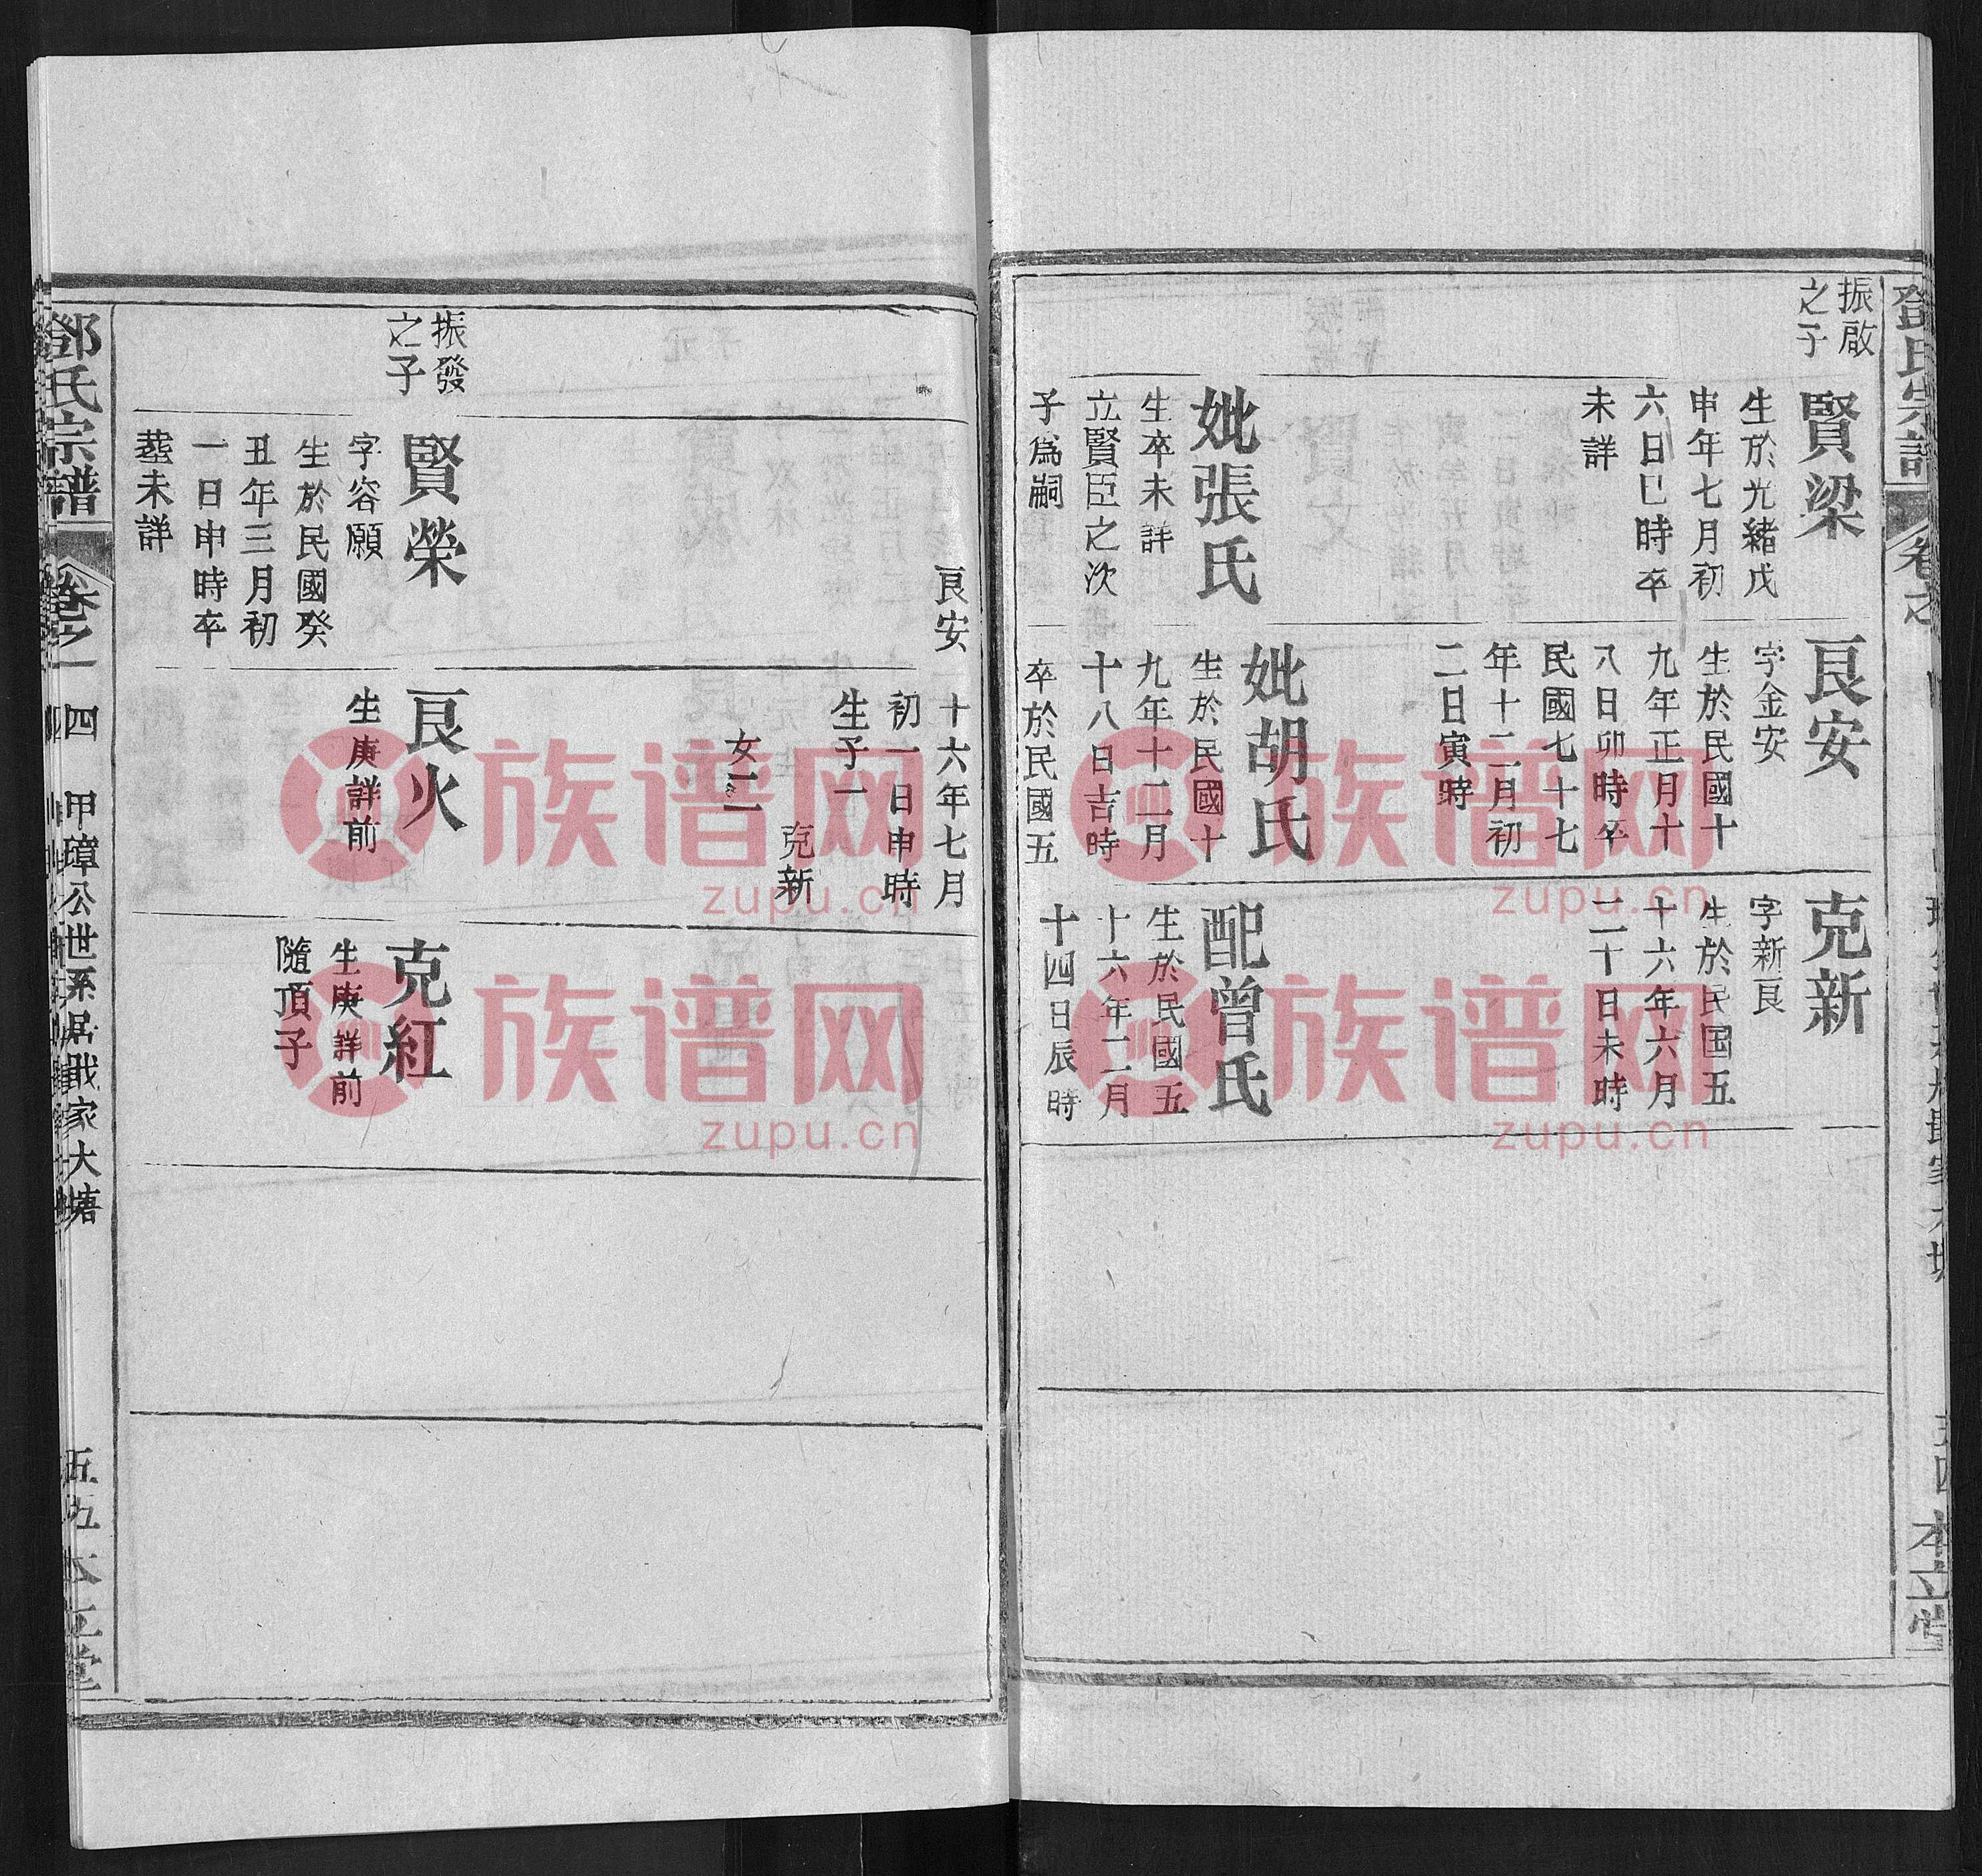 鄧氏宗譜
本立堂
振啟
之子
賢梁
生於光緒戊
申年七月初
六日巳時卒
未詳
妣張氏
生卒未詳
立賢臣之次
子為嗣
良安
字金安
生於民國十
九年正月十
八日卯時卒
民國七十七
年十二月初
二日寅時
妣胡氏
生於民國十
九年十二月
十八日吉時
卒於民國五
克新
字新良
生於民国五
十六年六月
二十日未時
配曾氏
生於民國五
十六年二月
十四日辰時
良安
十六年七月
初一日申時
生子一
克新
女二
振發
之子
賢榮
字容願
生於民國癸
丑年三月初
一日申時卒
塟未詳
良火
生庚詳前
克紅
生庚詳前
隨頂子
鄧氏宗譜
卷之一
四
甲璋公世系居戢家大塘
本立堂
族谱网
zupu.cn
族谱网
zupu.cn
族谱网
zupu.cn
族谱网
zupu.cn